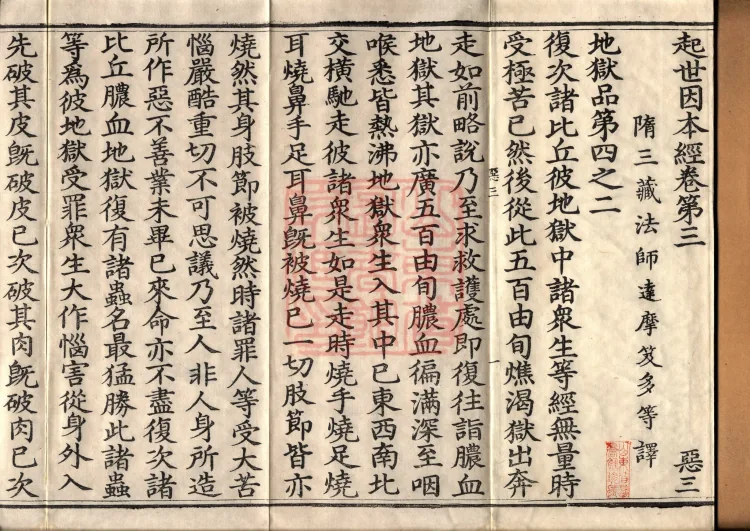 起世因本經卷第三　惡三
隋三藏法師達摩笈多等譯
地獄品第四之二
復次諸比丘彼地獄中諸衆生等經無量時
受極苦已然後從此五百由旬燋渴獄出奔
惡三　一
走如前略說乃至求救護處即復往詣膿血
地獄其獄亦廣五百由旬膿血徧滿深至咽
喉悉皆熱沸地獄衆生入其中已東西南北
交橫馳走彼諸衆生如是走時燒手燒足燒
耳燒鼻手足耳鼻旣被燒已一切肢節皆亦
燒然其身肢節被燒然時諸罪人等受大苦
惱嚴酷重切不可思議乃至人非人身所造
所作惡不善業未畢已來命亦不盡復次諸
比丘膿血地獄復有諸蟲名最猛勝此諸蟲
等為彼地獄受罪衆生大作惱害從身外入
先破其皮旣破皮已次破其肉旣破肉已次